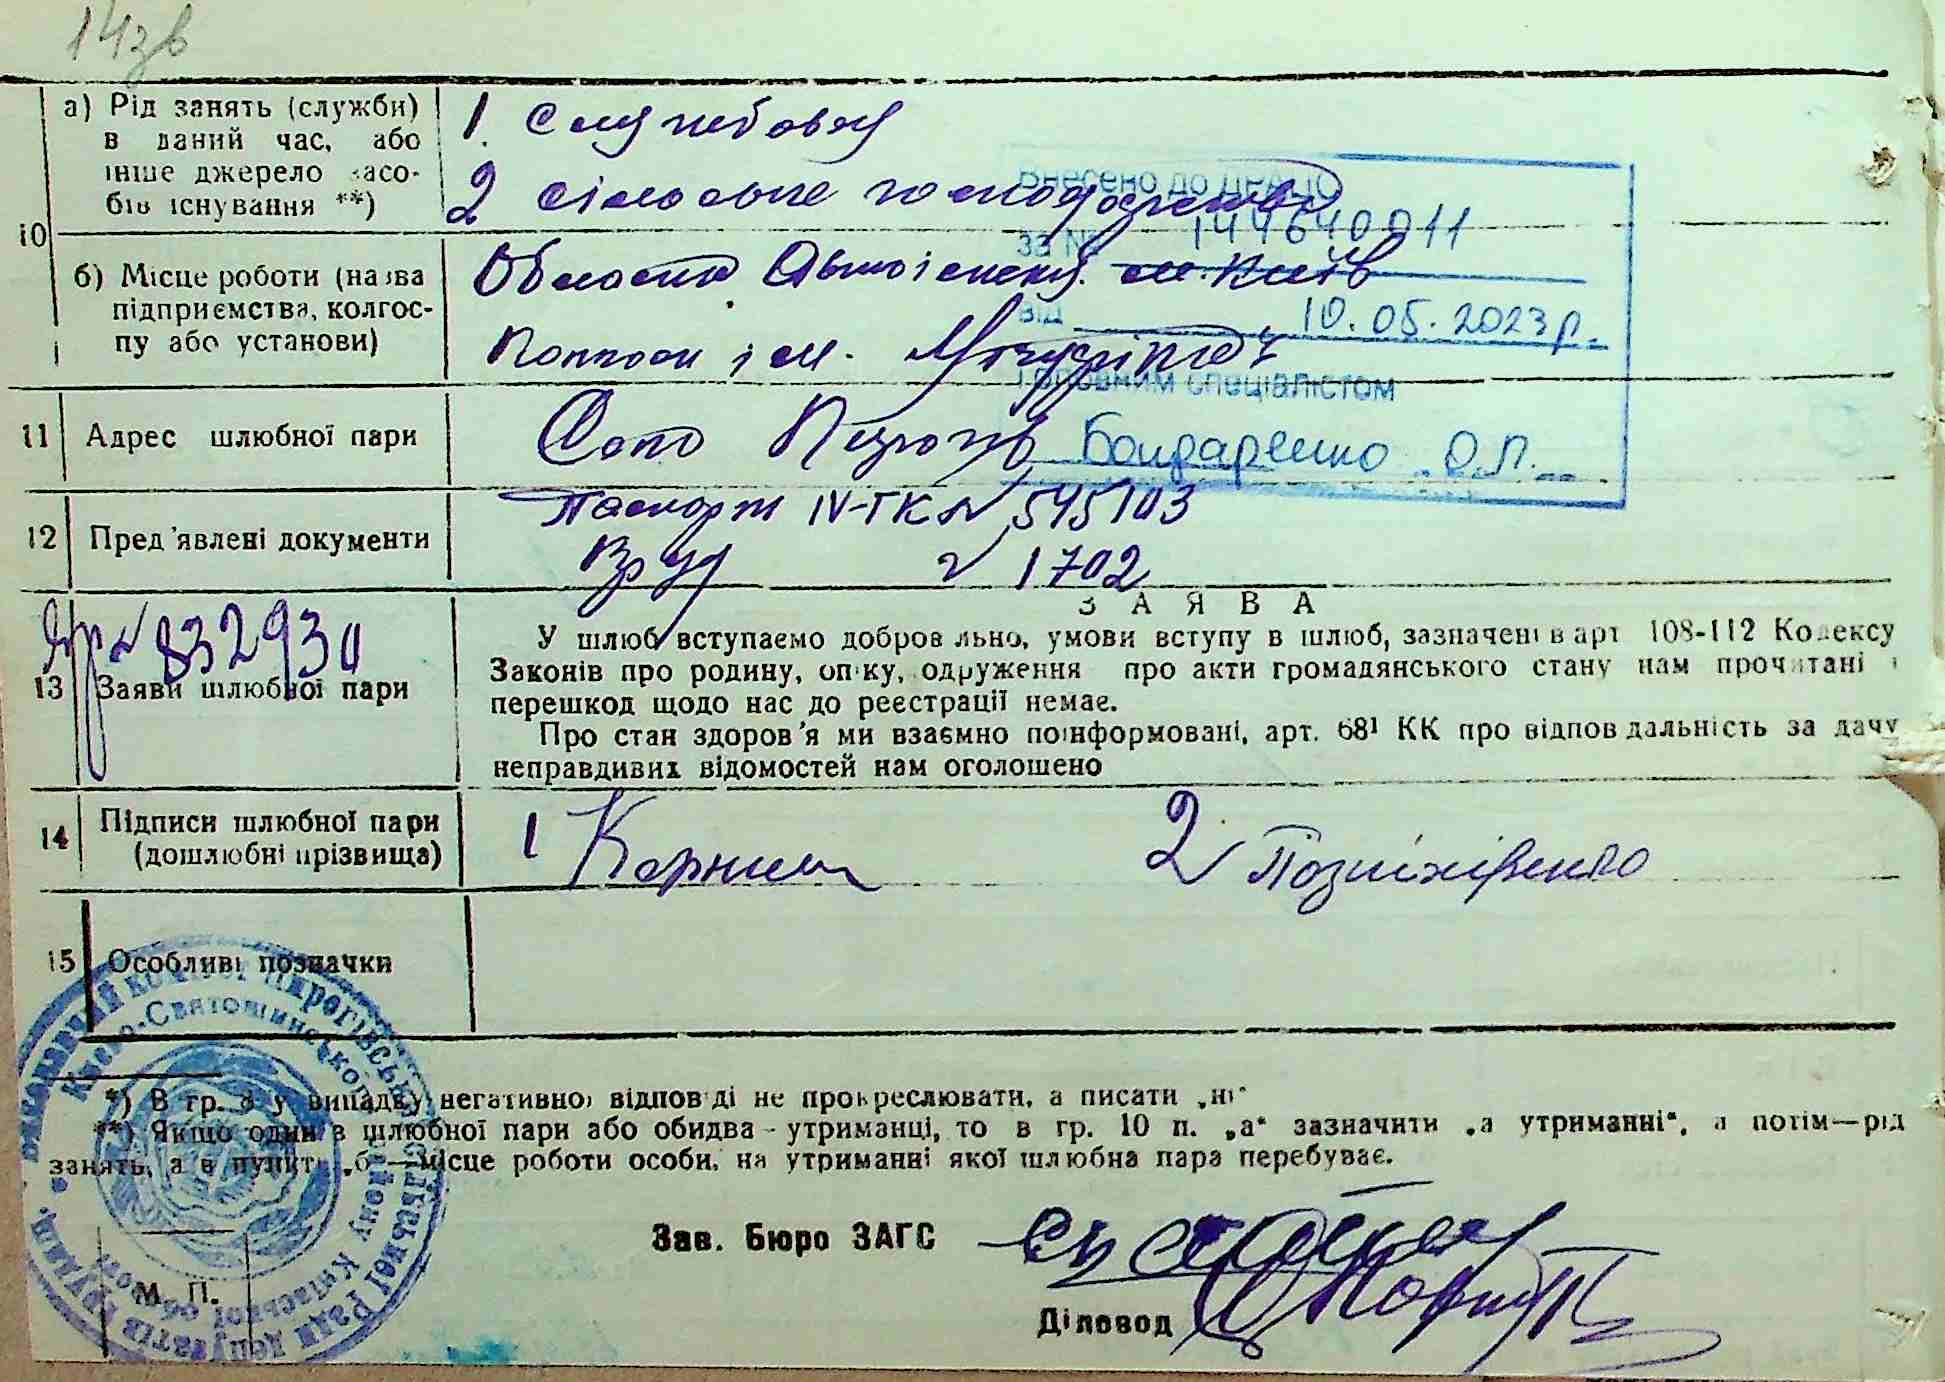 14зв
10
а) Рід занять (служби)
в даний час, або
інше джерело засо-
бів існування **)
1. Службовец
2 сільське господарство
Внесено до ДРАЦС
за № 144640011
б) Місце роботи (назва
підприємства, колгос-
пу або установи)
Обласна Автоінспек. м. Київ
від 10.05.2023р.
ім. Мічуріна
Головним спеціалістом
11 Адрес шлюбної пари
Село Пирогів
Бондаренко О.П.
12 Пред'явлені документи
Паспорт IV-ГК № 545103
№ 1702
№ 832930
13 Заяви шлюбної пари
ЗАЯВА
У шлюб вступаємо добровільно, умови вступу в шлюб, зазначені в арт 108-112 Кодексу
Законів про родину, опіку, одруження про акти громадянського стану нам прочитані і
перешкод щодо нас до реєстрації немає.
Про стан здоров'я ми взаємно поінформовані, арт. 68¹ КК про відповідальність за дачу
неправдивих відомостей нам оголошено
14 Підписи шлюбної пари
(дошлюбні прізвища)
1 Корниец
2 Позніхівенко
15 Особливі позначки
*) В гр. а у випадку негативної відповіді не прокреслювати, а писати „ні"
**) Якщо один в шлюбної пари або обидва - утриманці, то в гр. 10 п. „а" зазначити „а утриманні", а потім—рід
занять, а в пункті „б"—місце роботи особи, на утриманні якої шлюбна пара перебуває.
Зав. Бюро ЗАГС
Діловод
М. П.
Виконавчий комітет Пирогівської сільської Ради депутатів трудящ.
Києво-Святошинського району Київської області